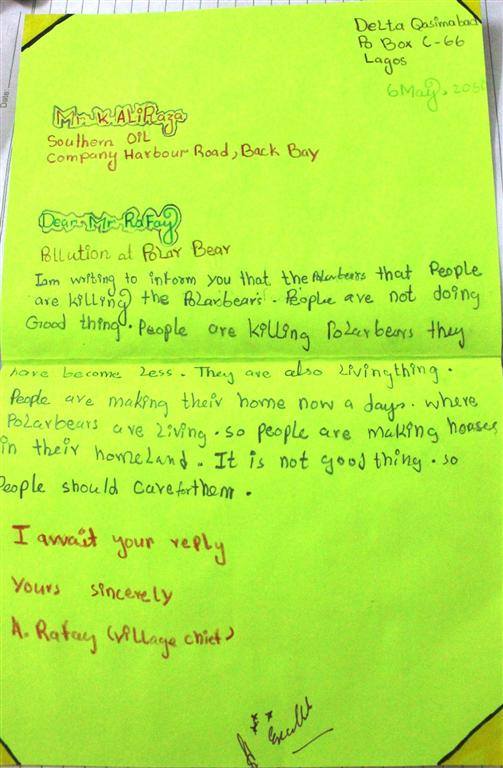 Delta Qasimabad
Po Box C-66
Lagos
6 May, 
Mr. K ALi Raza
Southern OiL
Company Harbour Road, Back Bay
Dear Mr Rafay
Pollution at PoLar Bear
I am writing to inform you that the Polarbears that People
are killing the Polarbears. People are not doing
Good thing. People are killing Polarbears they
have become Less. They are also Livingthing.
People are making their home now a days. where
Polarbears are Living. so people are making houses
in their homeland. It is not good thing. so
People should care for them.
I await your reply
Yours sincerely
A. Rafay (village chief)
Excellent